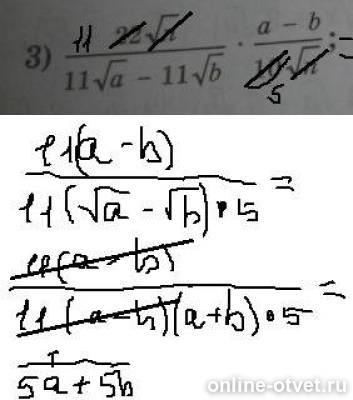 3) 11 22√n / 11√a − 11√b · a − b / 10√n ; =
5
11(a - b)
11(√a - √b) · 5 =
11(a - b)
11(a - b)(a + b) · 5 =
1
5a + 5b
online-otvet.ru